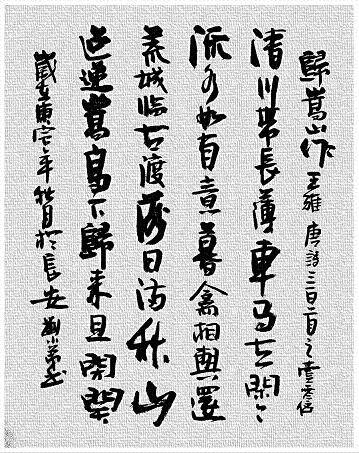 歸嵩山作 王維 唐詩三百首之
清川帶長薄車馬去閑〻
流水如有意暮禽相與還
荒城临古渡落日满秋山
迢遞嵩高下歸来且閉關
歲在庚寅年秋月於長安